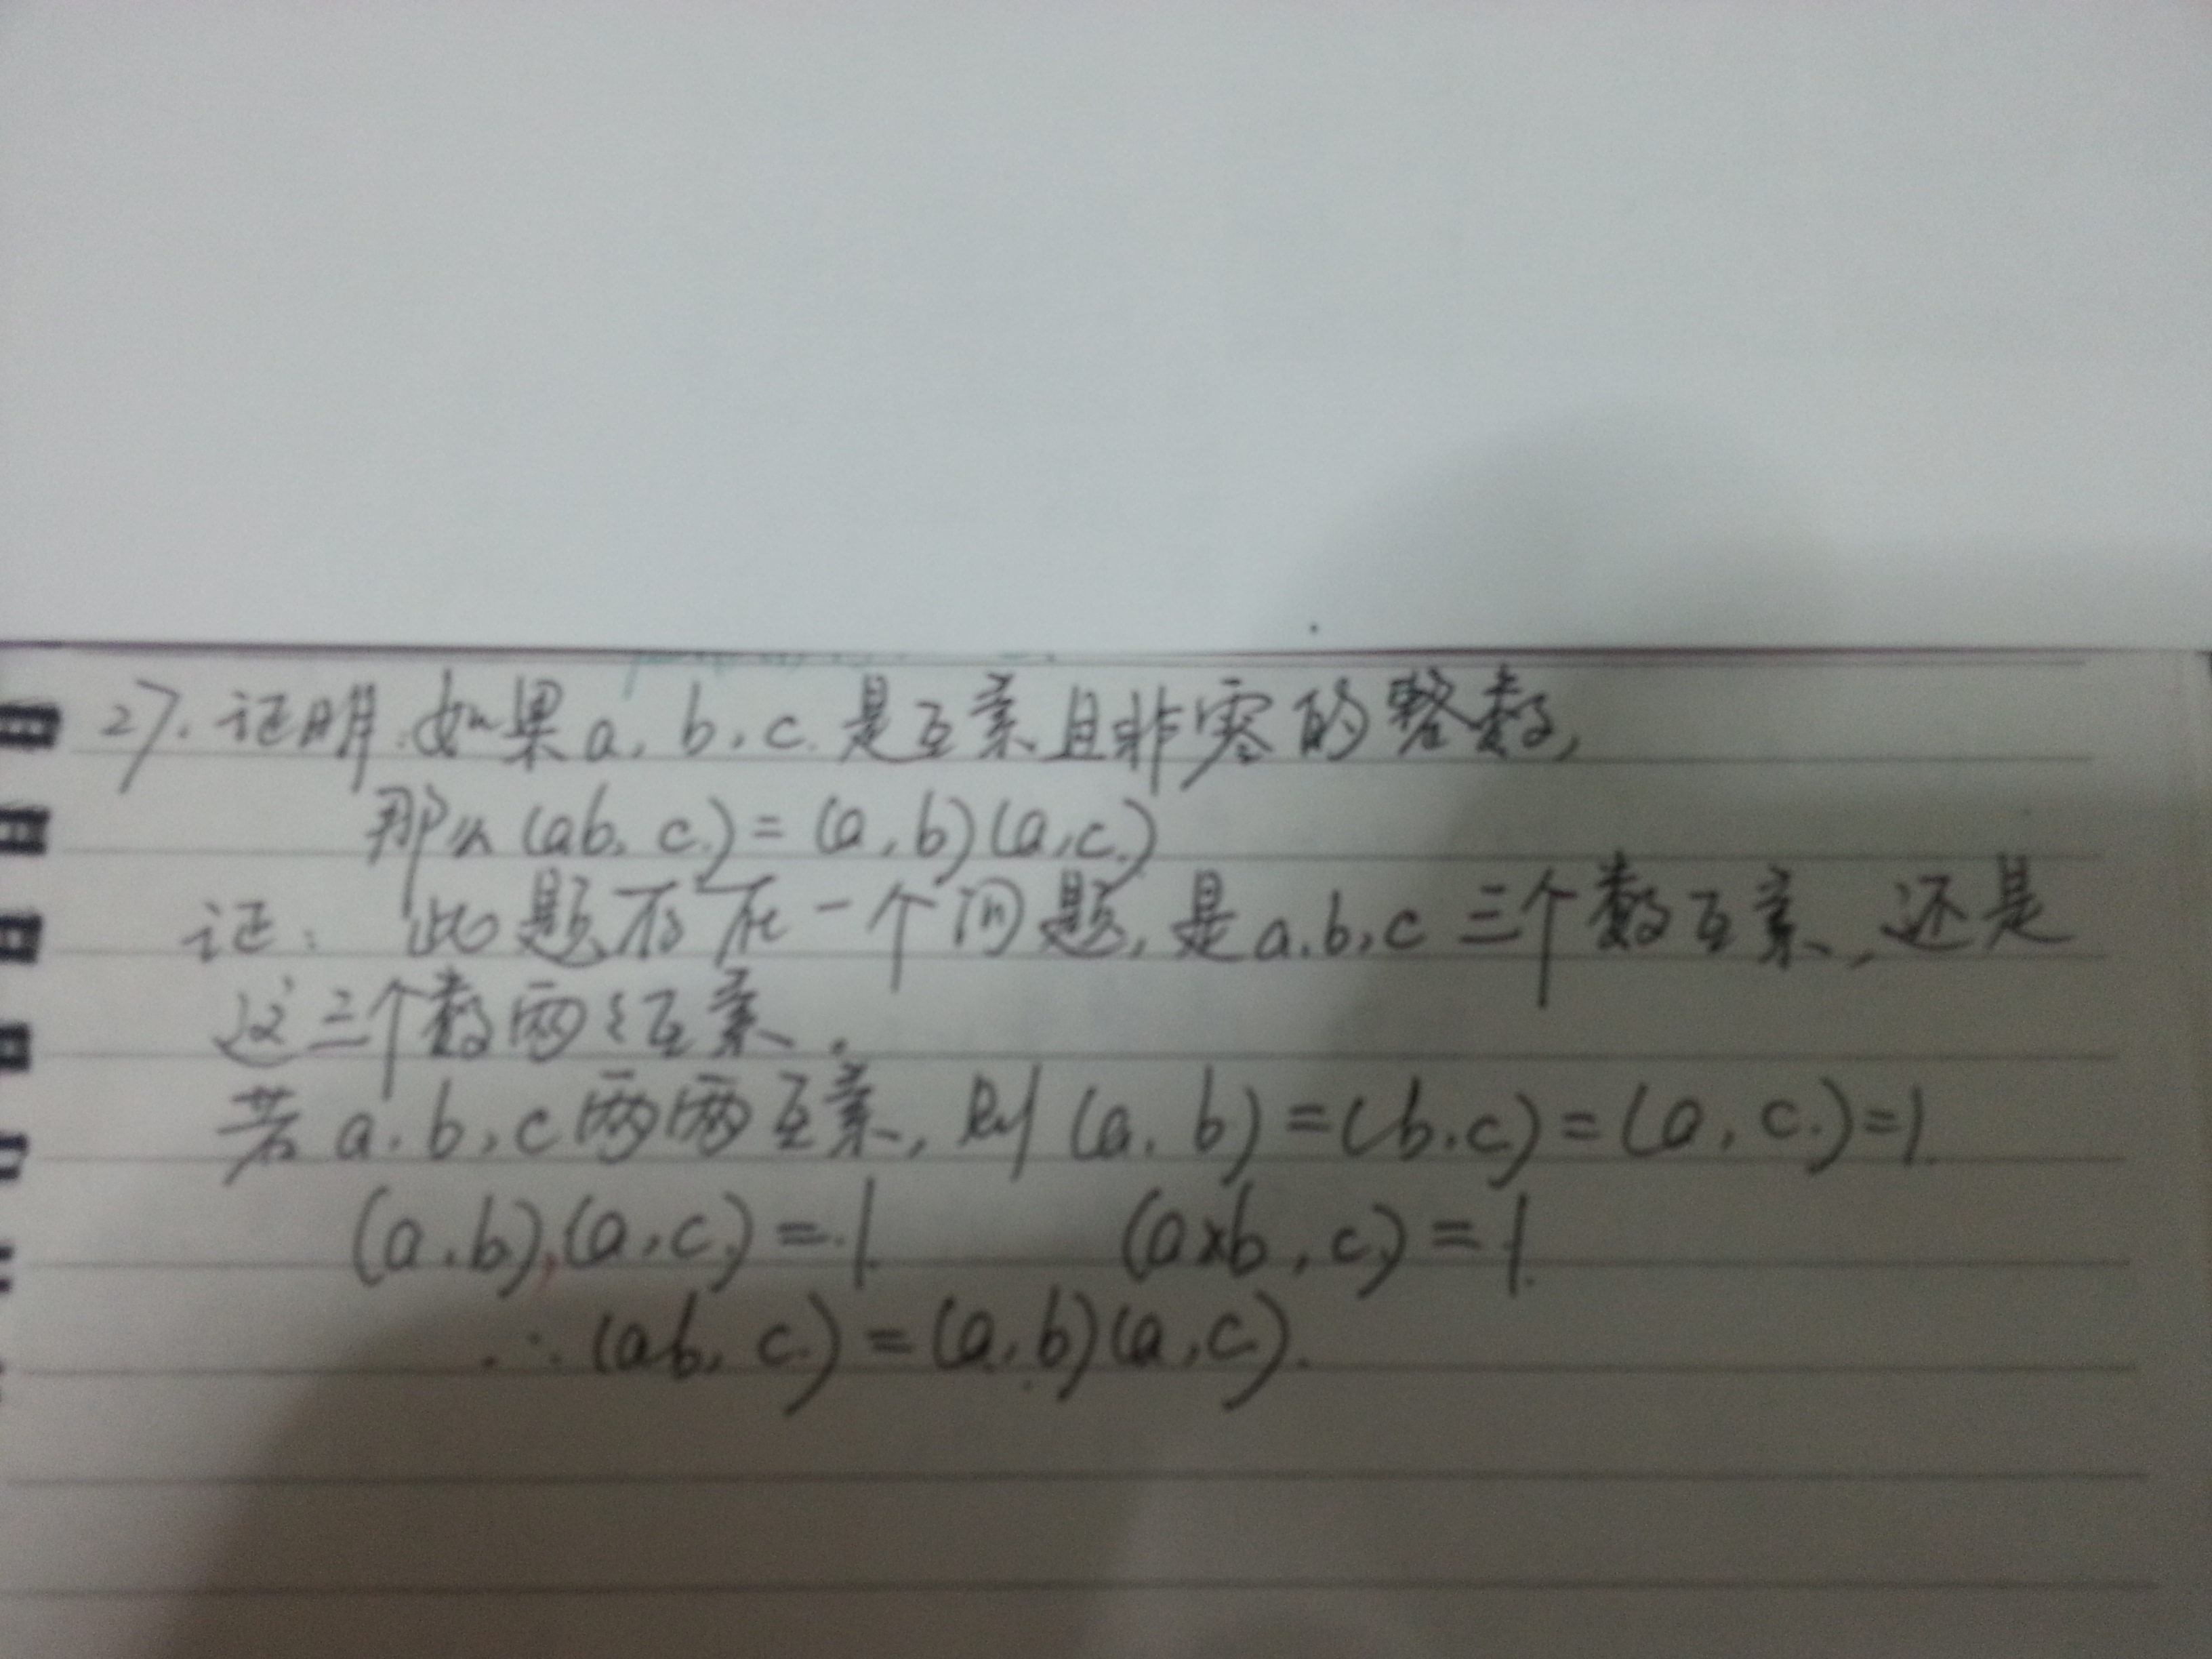 27. 证明.如果a, b, c.是互素且非零的整数,
那么(ab, c.)=(a,b)(a,c.)
证: 此题存在一个问题,是a.b,c三个数互素,还是
这三个数两々互素.
若a,b,c两两互素,则(a,b)=(b,c)=(a,c.)=1.
(a,b),(a,c.)=1 (a×b,c)=1.
∴(ab, c.)=(a,b)(a,c).